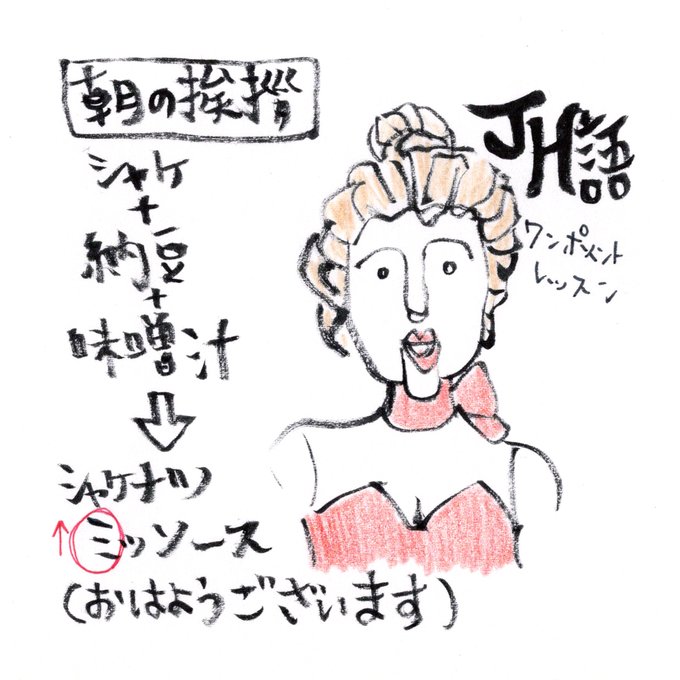 朝の挨拶
シャケ
+
納豆
+
味噌汁
シャケナツ
↑ミッソース
(おはようございます)
JH語
ワンポメント
レッスン